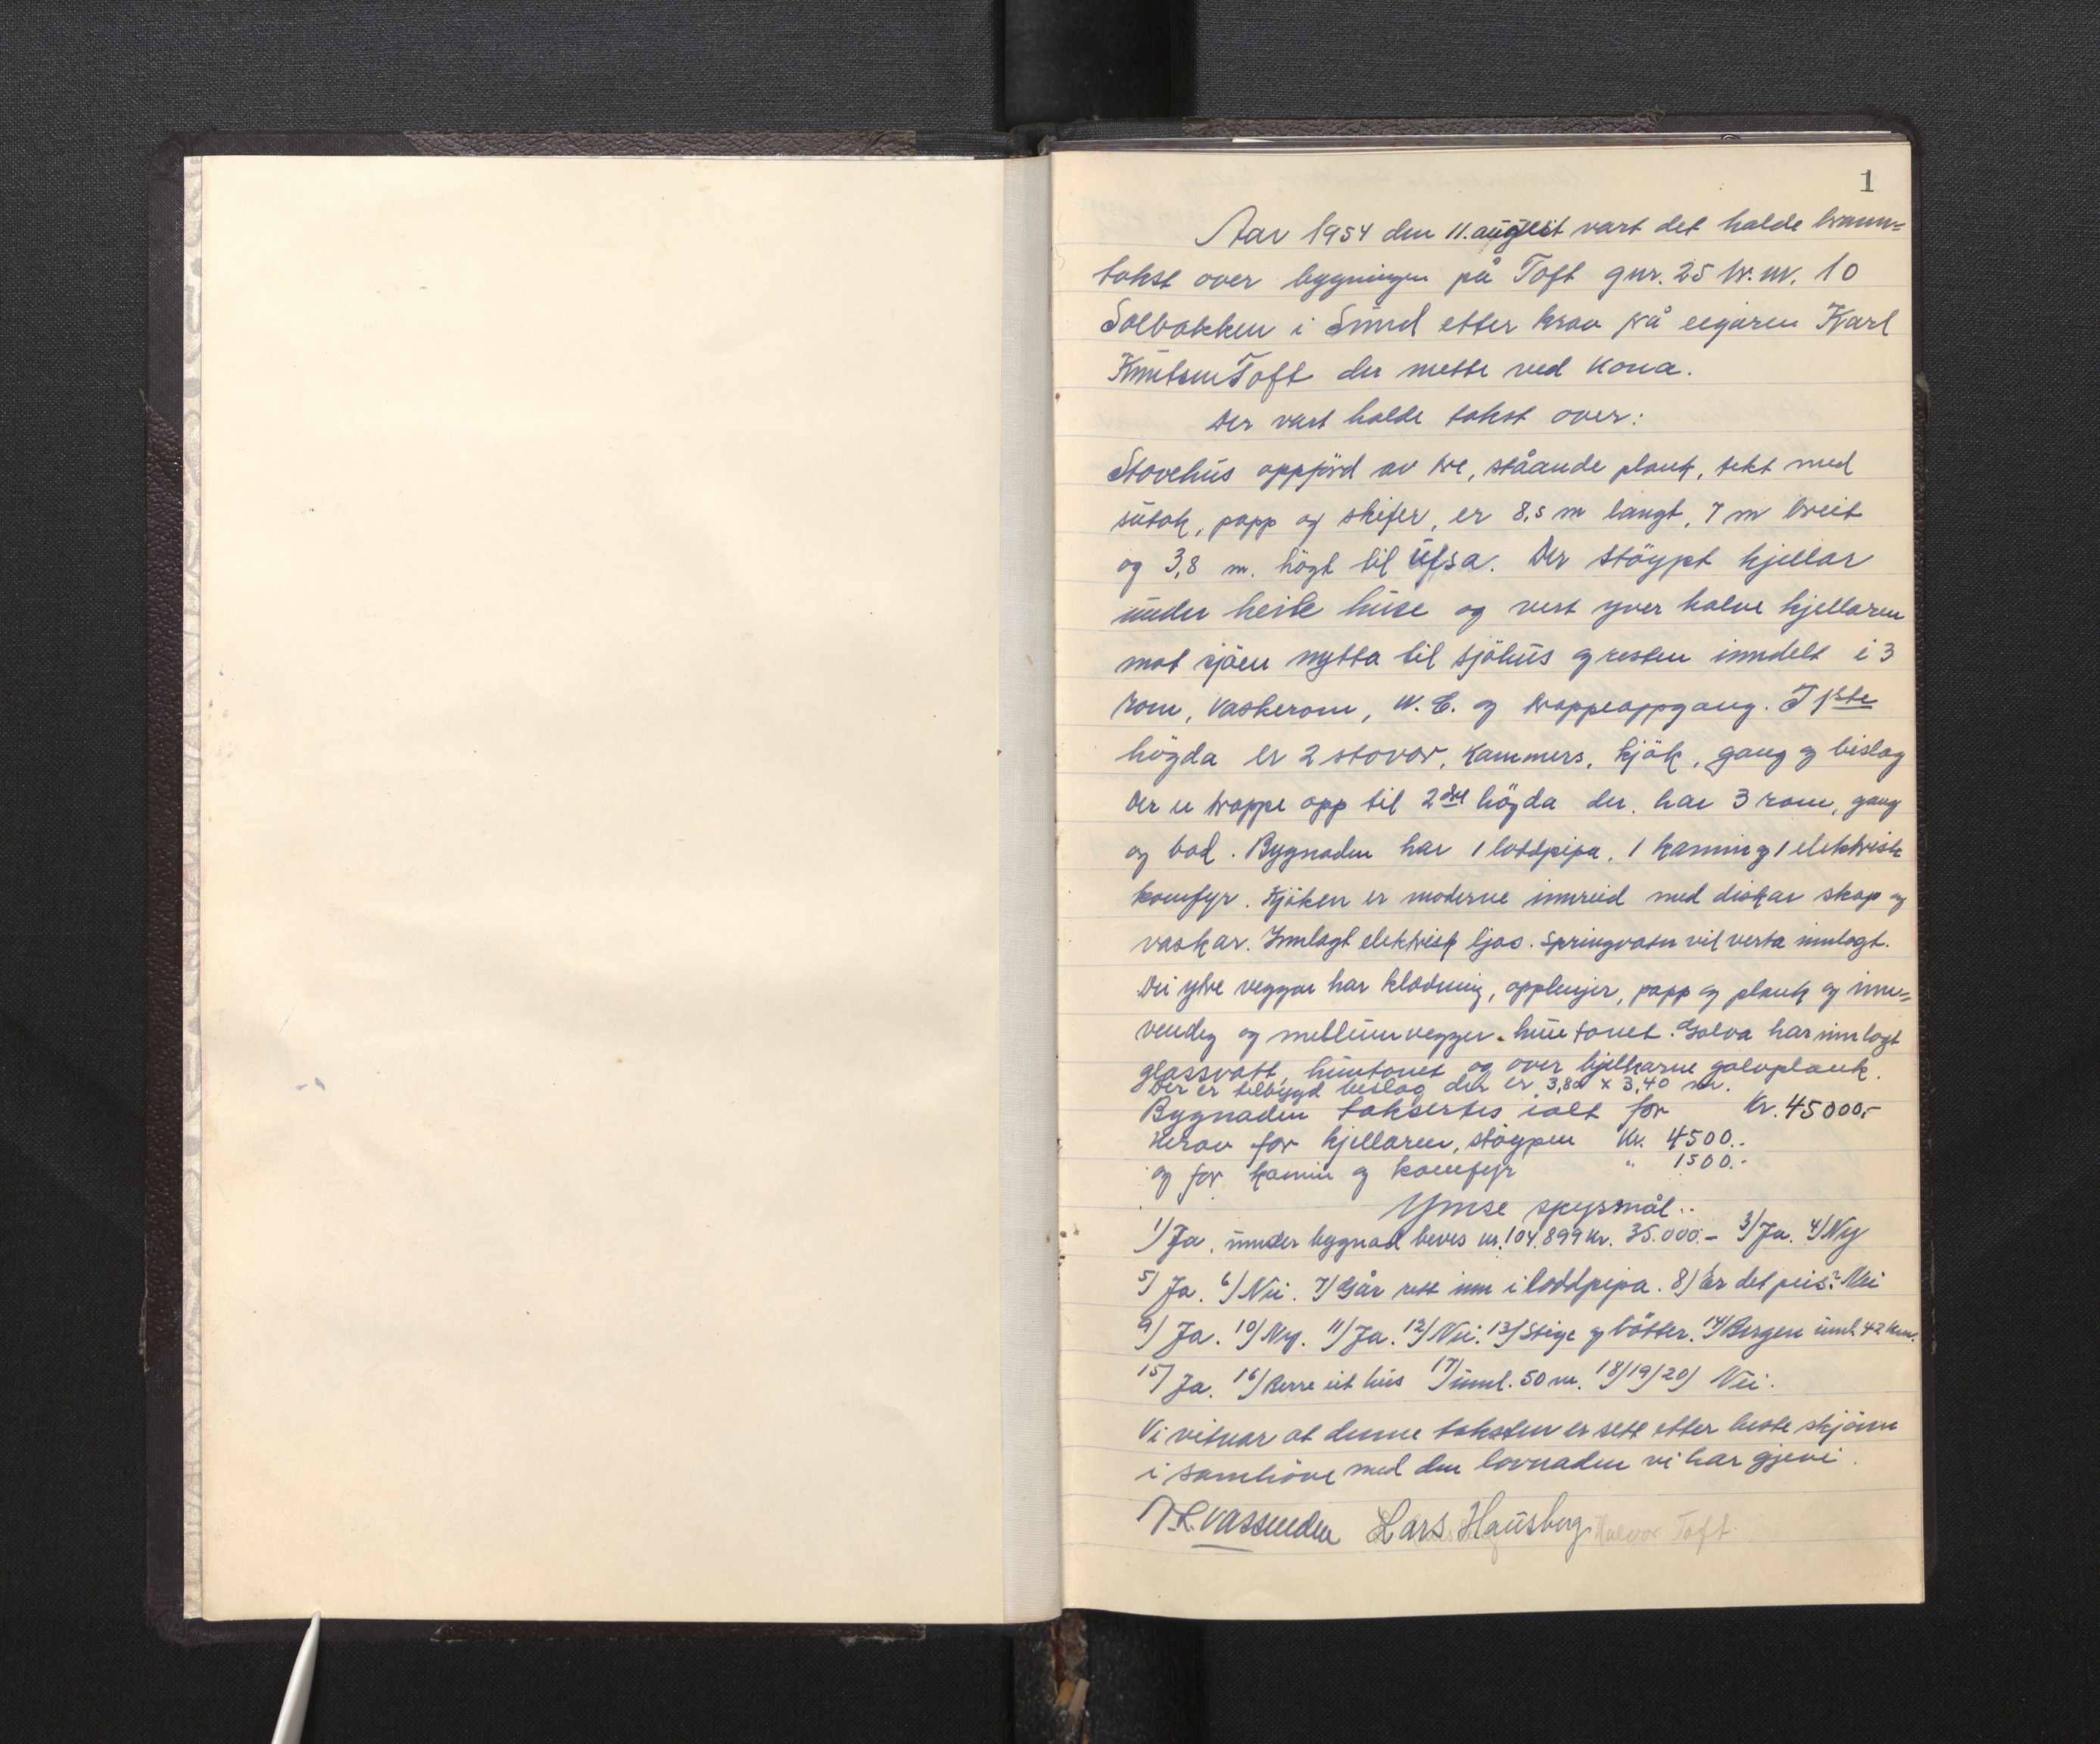 1
Aar 1954 den 11. august vart det halde brann=
takst over bygningen på Toft gnr. 25 br. nr. 10
Solbakken i Sund etter krav frå eigaren Karl
Knutsen Toft der møtte ved kona.
Der vart halde takst over:
Stovehus oppförd av tre, ståande plank, tekt med
sutak, papp og skifer, er 8,5 m langt, 7 m breit
og 3,8 m. högt til ufsa. Der stöypt kjellar
under heile huse og vert yver halve kjellaren
mot sjöen nytta til sjöhus og resten inndelt i 3
rom, vaskerom, W.C. og trappeoppgang. I 1ste
högda er 2 stovor, kammers, kjök, gang og bislag
Der er trappe opp til 2dre högda der har 3 rom, gang
og bad. Bygnaden har 1 loddpipa, 1 kamin og 1 elektrisk
komfyr. Kjöken er moderne innreid med diskar skap og
vaskar. Innlagt elektrisk ljos. Springvatn vil verta innlagt.
Dei ytre veggar har kledning, opplenjer, papp og plank og inn=
vendig og mellumvegger huntonet. Golva har innlagt
glassvatt, huntonet og over bjelkarne golvplank.
Der er tilbygd beslag der er 3,80 x 3,40 m.
Bygnaden taksertes ialt for Kr. 45000,-
Herav for kjellaren, stöypen Kr. 4500.-
og for kamin og komfyr " 1500.-
Ymse spysmål..
1) Ja, under bygnad bevis nr. 104.899 Kr. 35.000.- 3) Ja. 4) Ny
5) Ja. 6) Nei. 7) Går rett inn i loddpipa. 8) Er det peis? Nei
9) Ja. 10) Ny. 11) Ja. 12) Nei. 13) Stige og bötter. 14) Bergen uml. 42 km.
15) Ja. 16) Berre eit hus 17) uml. 50 m. 18/19/20) Nei.
Vi vitnar at denne taksten er sett etter beste skjönn
i samhöve med den lovnaden vi har gjevi.
Vassenden Lars Hausberg Halvor Toft